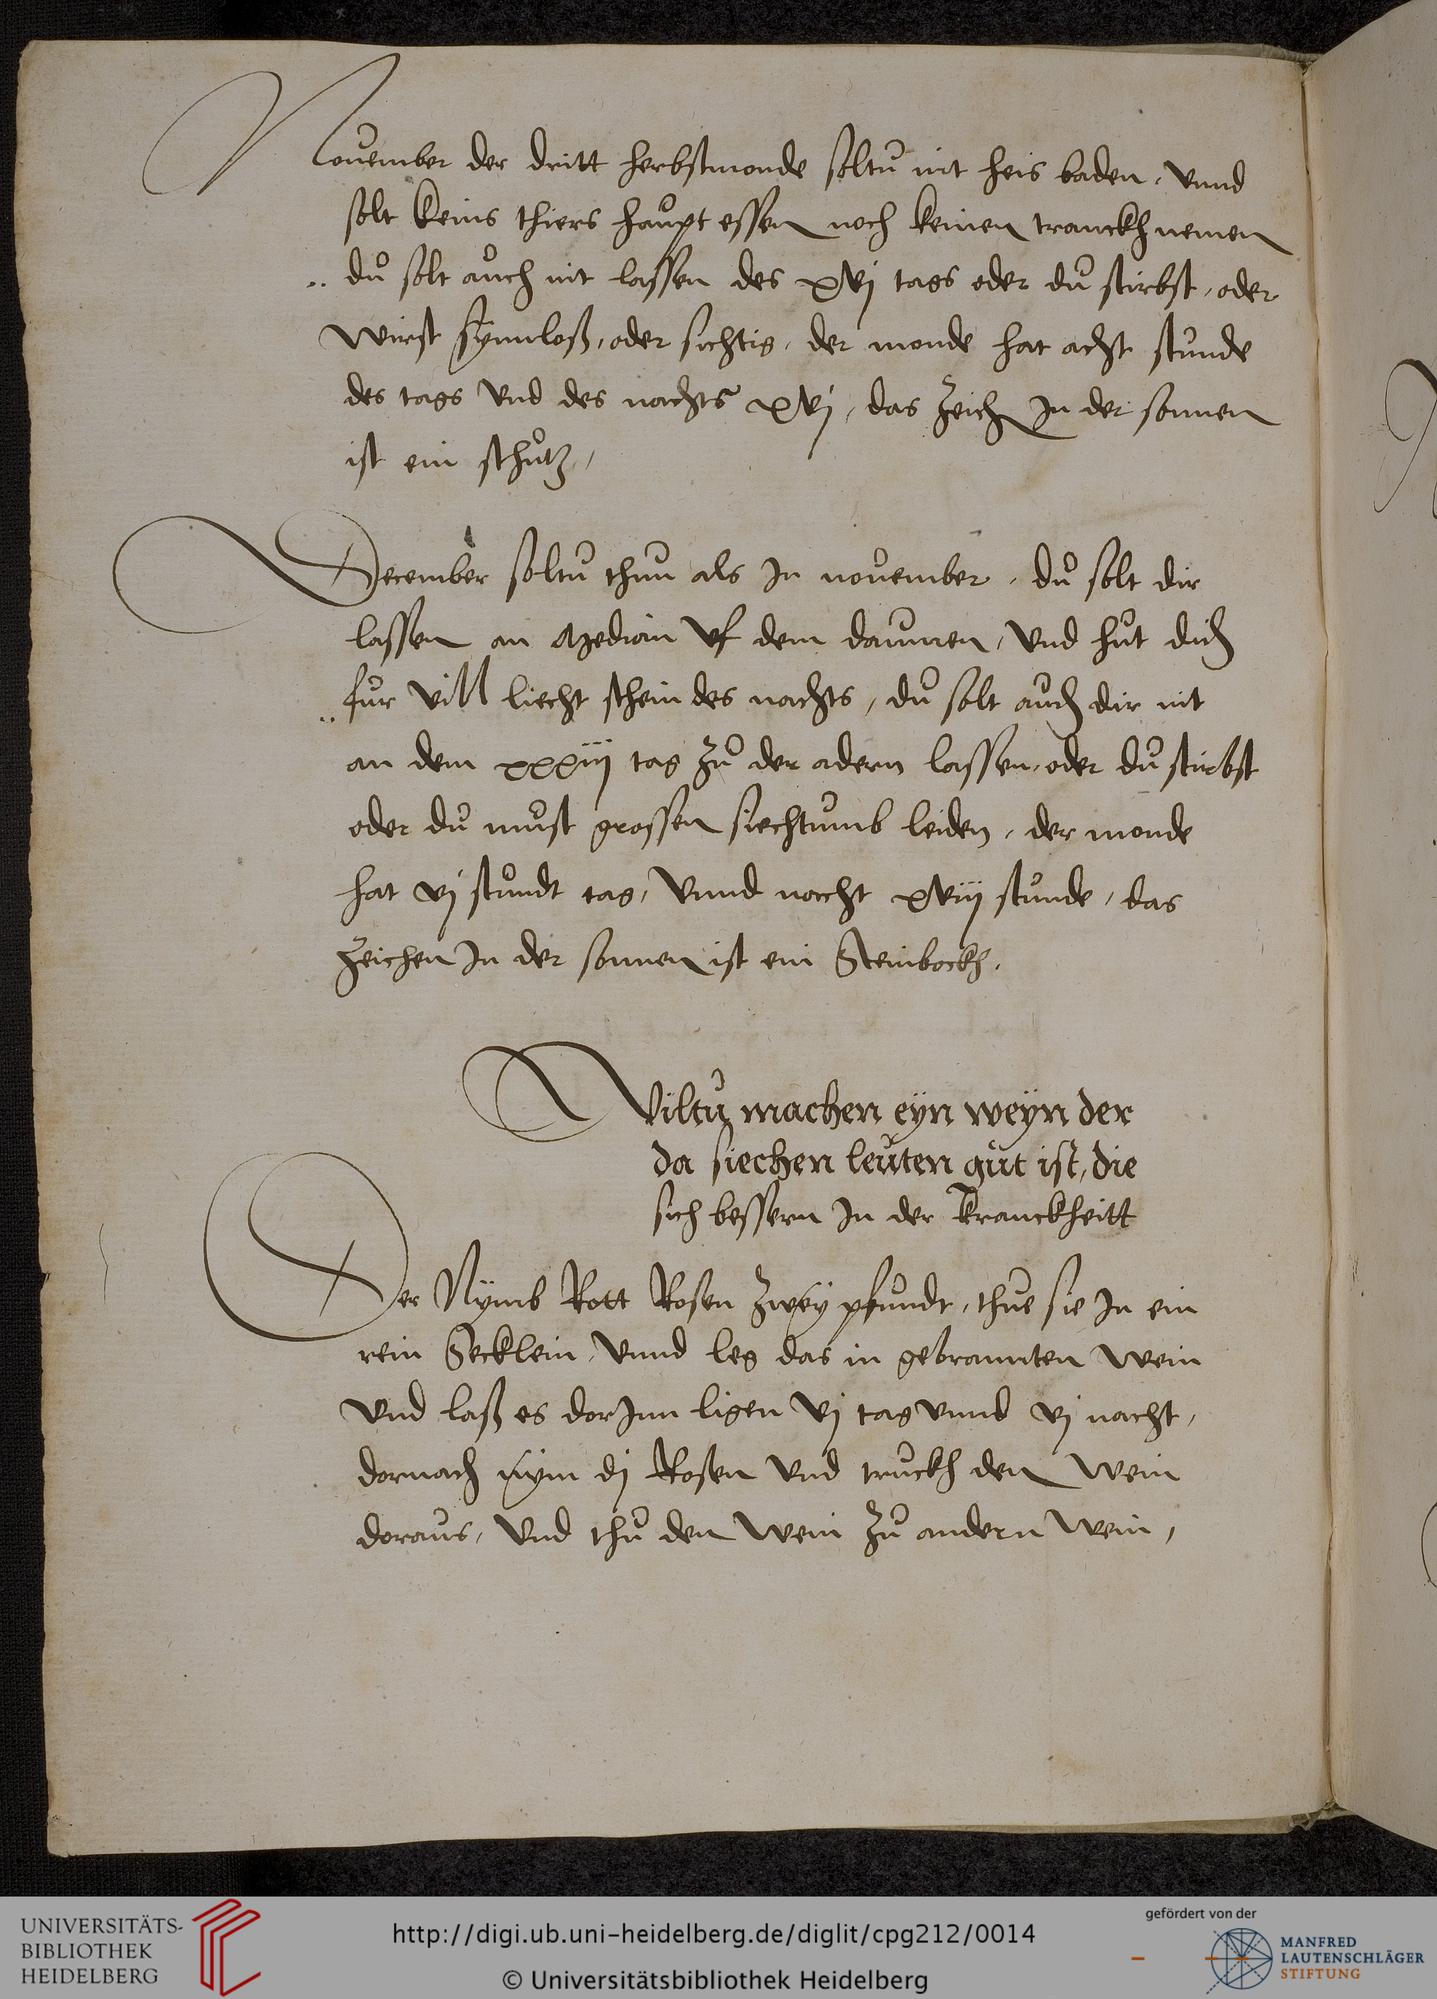 November der dritt herbstmonde soltu nit heis baden, vnnd
solt keins thiers haupt essen noch keinen tranckh nemen
du solt auch nit lassen des xvj tags oder du stirbst, oder
wirst synnloß, oder sichtig, der monde hat acht stunde
des tags vnd des nachts xvj, das zeich In der sonnen
ist ein schutz,
December soltu thun als In nouember, du solt dir
lassen an Median vf dem daumen, vnd hut dich
fur vill liecht schein des nachts, du solt auch dir nit
an dem xxxiij tag zu der adern lassen, oder du stirbst
oder du must grossen siechtumb leiden, der monde
hat vj stundt tag, vnnd nacht xviij stunde, das
zeichen In der sonnen ist ein Steinbockh.
Wiltu machen eyn weyn der
da siechen leuten gut ist, die
sich bessern In der kranckheitt
Der Nÿmb Rott Rosen zweÿ pfundt, thue sie In ein
rein Secklein, vnnd leg das in gebrannten wein
vnd laß es dorInn ligen vj tag vnnd vj nacht,
dornach nÿm dj Rosen vnd truckh den wein
doraus, vnd thu den wein zu andern wein,
UNIVERSITÄTS-
BIBLIOTHEK
HEIDELBERG
http://digi.ub.uni-heidelberg.de/diglit/cpg212/0014
© Universitätsbibliothek Heidelberg
gefördert von der
MANFRED
LAUTENSCHLÄGER
STIFTUNG